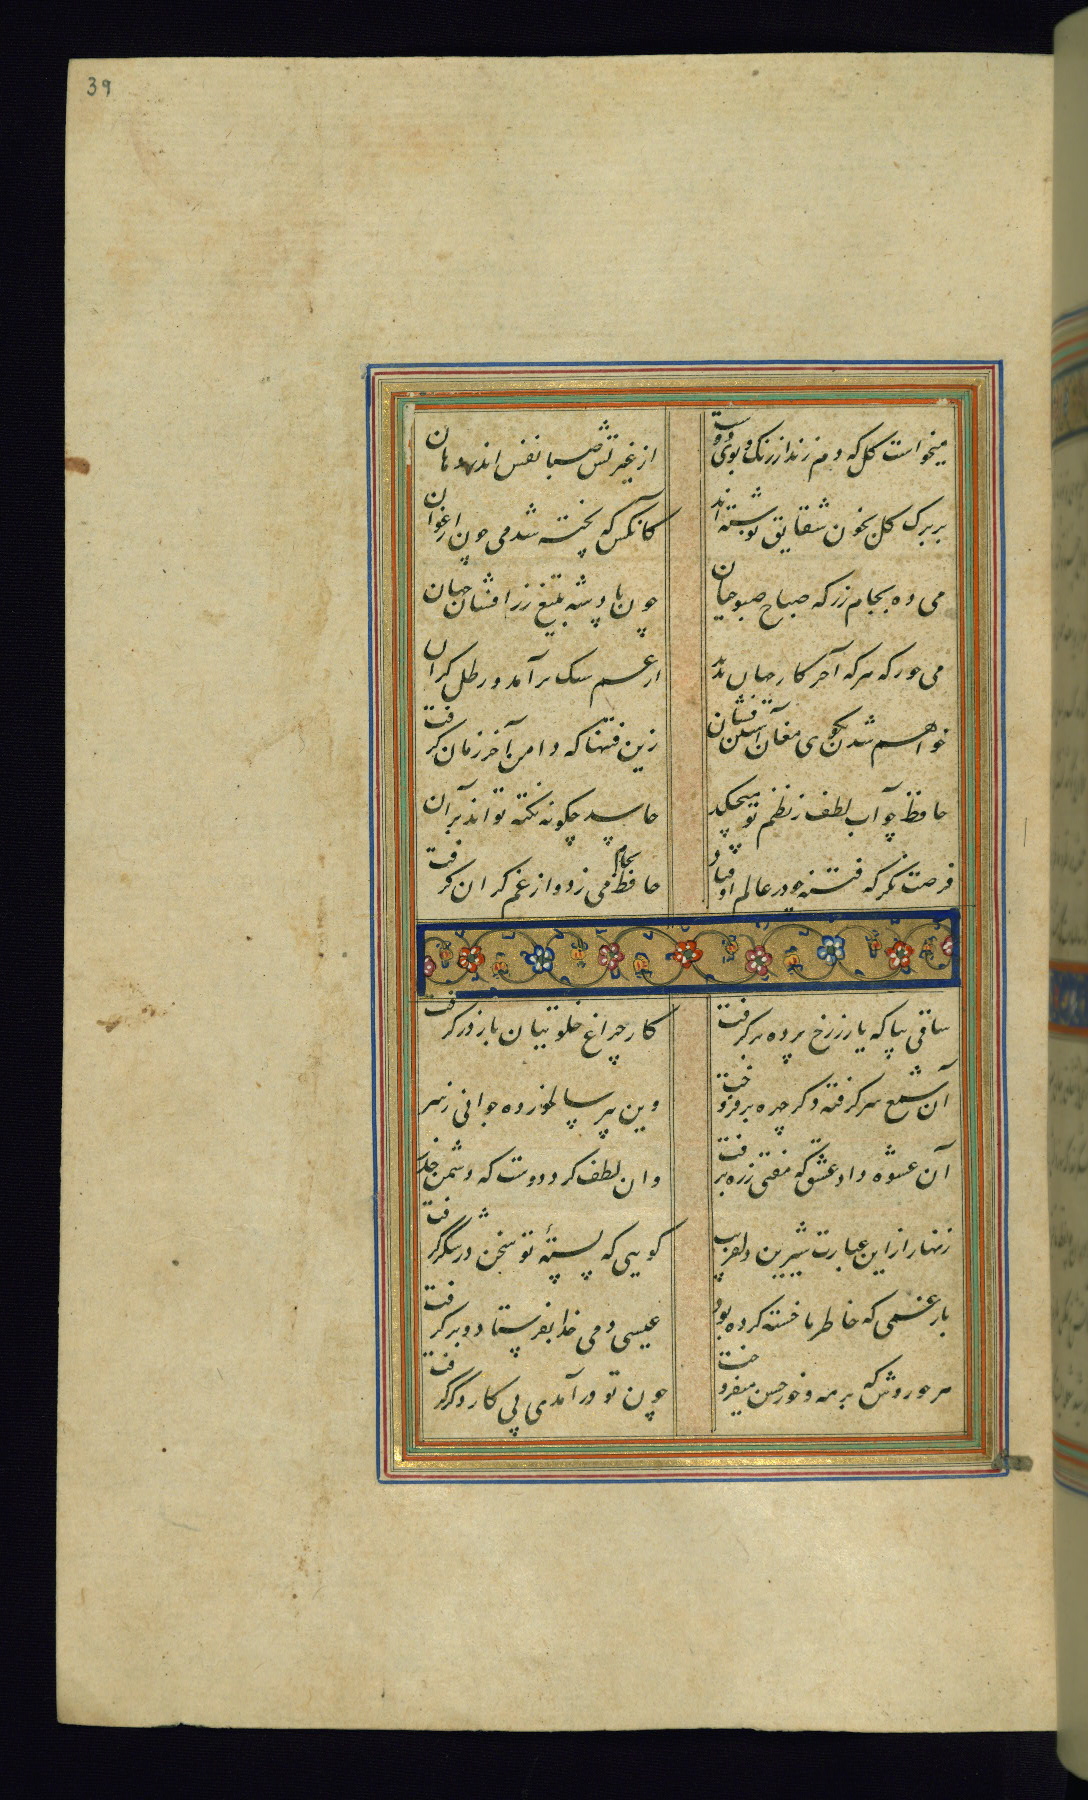 39
میخواست گل که دم زند از رنک و بوی دوست از غیرتش صبا نفس اندر دهان
بر برک گل بخون شقایق نوشته‌اند کانکس که پخته شد می چون ارغوان
می ده بجام زر که صباح صبوحیان چون پادشه بتیغ زر افشان جهان
می خور که هر که آخر کار جهان بدید از غم سبک برآمد و رطل گران
خواهم شدن بکوی مغان آستین فشان زین فتنها که دامن آخر زمان گرفت
حافظ چو آب لطف ز نظم تو میچکد حاسد چکونه نکته تواند بر آن
فرصت نکر که فتنه چو در عالم اوفتاد حافظ بجام می زد و از غم کران گرفت
ساقی بیا که یار ز رخ پرده برگرفت کار چراغ خلوتیان باز در گرفت
آن شمع سر گرفته دگر چهره بر فروخت وین پیر سالخورده جوانی ز سر
آن عشوه داد عشق که مفتی ز ره برفت وان لطف کرد دوست که دشمن حذر گرفت
زنهار از این عبارت شیرین دلفریب گویی که پستهٔ تو سخن در شکر گرفت
بار غمی که خاطر ما خسته کرده بود عیسی دمی خدا بفرستاد و بر گرفت
هر حوروش که بر مه و خور حسن میفروخت چون تو در آمدی پی کار دگر گرفت